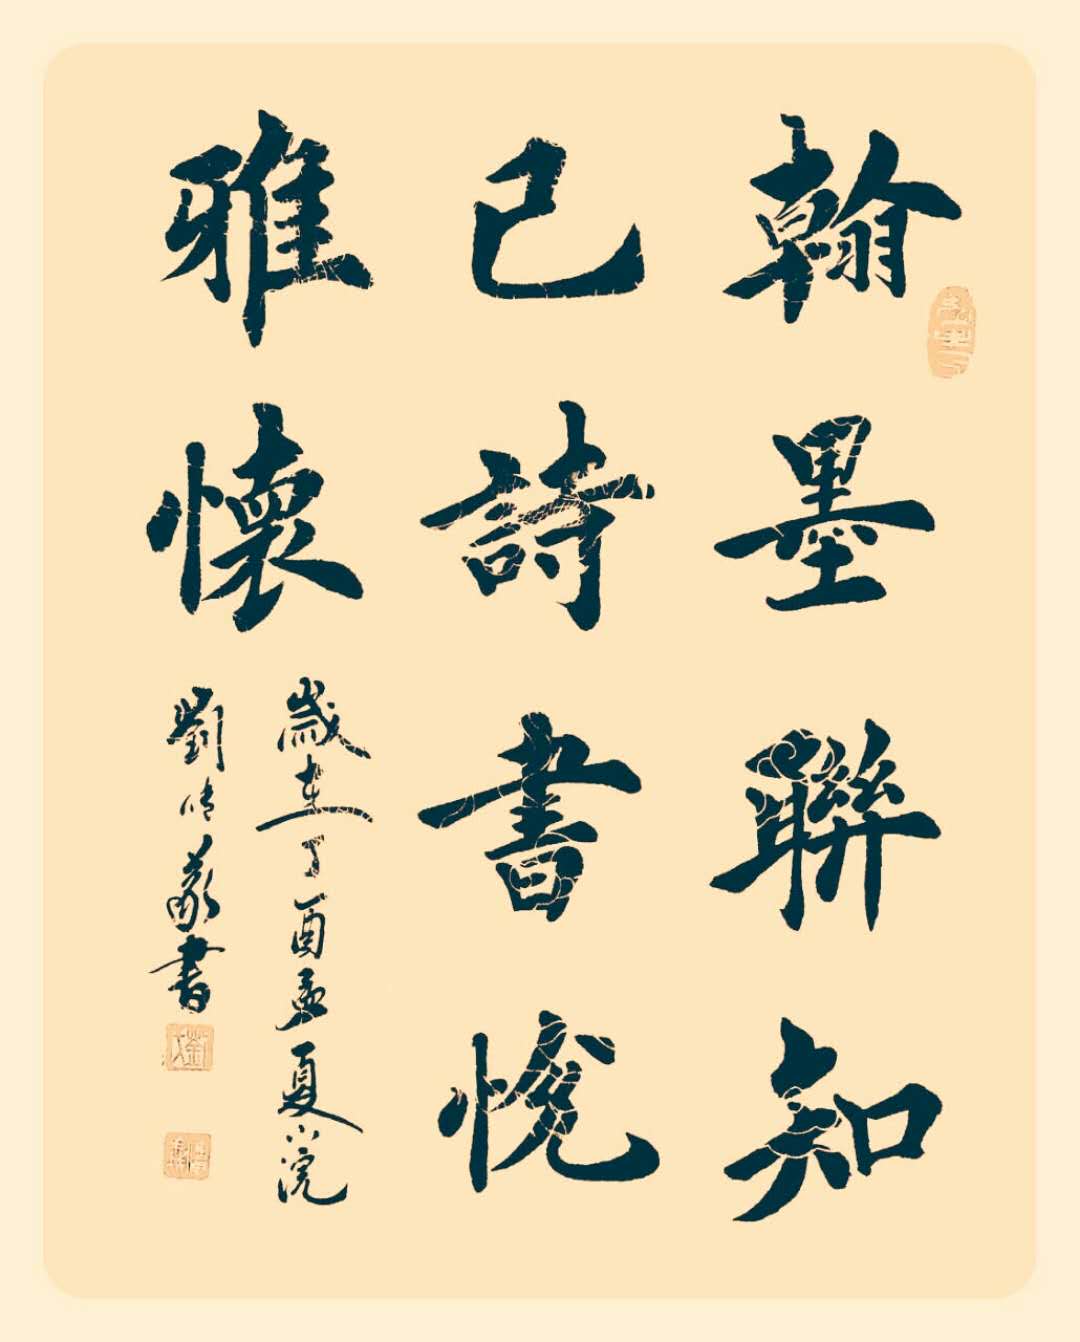 翰墨聯知
己詩書悅
雅懷
歲在丁酉孟夏小浣
劉　書